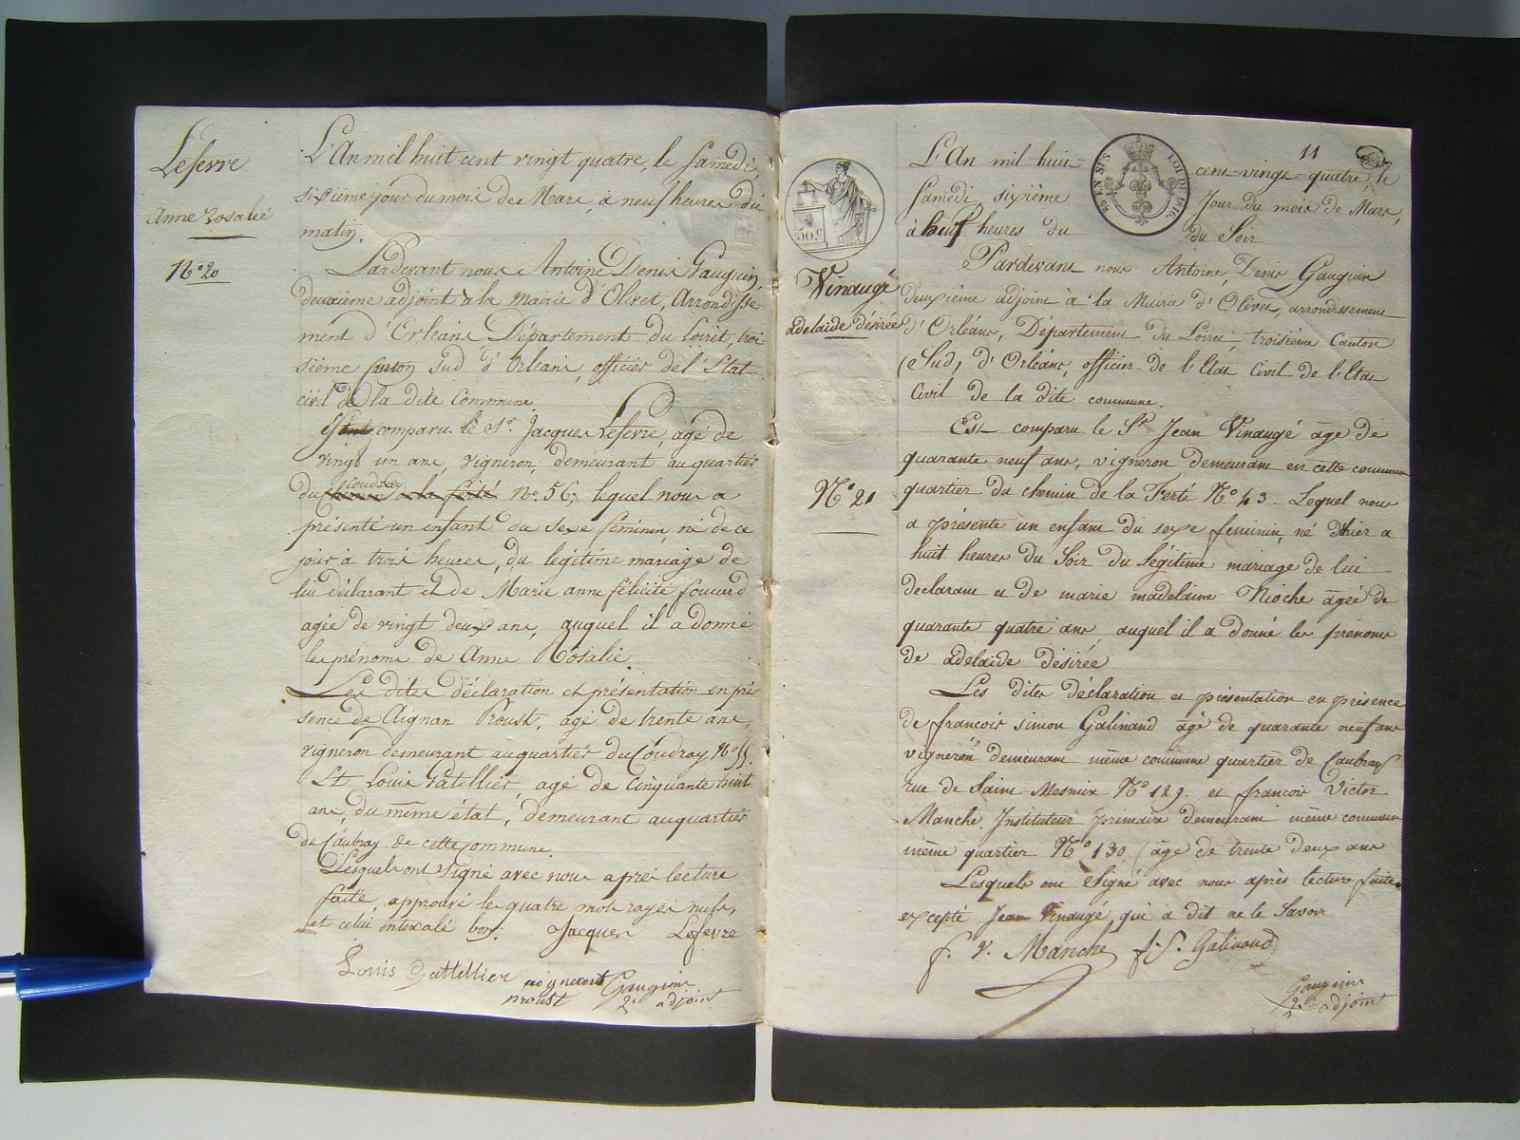 Lefevre
Anne Rosalie
N.º 20
L'An mil huit cent vingt quatre, le Samedi,
sixième jour du mois de Mars, à neuf heures du
matin.
Pardevant nous Antoine Denis Gauguin,
deuxième adjoint à la mairie d'Olivet, Arrondisse
ment d'Orléans Département du Loiret, troi
sième Canton Sud d'Orléans, officier de l'Etat
civil de la dite Commune
comparu le Sr. Jacques Lefevre, agé de
vingt un ans, vigneron, demeurant au quartier
Coudray
du la ferté Nº 56, lequel nous a
présenté un enfant du sexe féminin, né de ce
jour à trois heures, du légitime mariage de
lui déclarant et de Marie anne félicité foucard
agée de vingt deux ans, auquel il a donné
les prénoms de Anne Rosalie.
Les dites déclaration et présentation en pré
sence de Aignan Proust, agé de trente ans,
vigneron demeurant au quartier du Coudray Nº 55.
et Louis Gatellier, agé de cinquante huit
ans, du même état, demeurant au quartier
du Caubray de cette commune.
Lesquels ont signé avec nous après lecture
faite, approuvé les quatre mots rayés nuls,
et celui intercalé bon. Jacques Lefevre
Louis Gattellier
proust
Gauguin
2e adjoint
11
L'An mil huit cent vingt quatre, le
EN SUS
Samedi sixième Jour du mois de Mars,
à heures du du Soir
50 c.
Pardevant nous Antoine, Denis Gauguin
Vinaugé
adelaide désirée
deuxième adjoint à la Mairie d'Olivet, arrondissement
d'Orléans, Département du Loiret, troisième Canton
(Sud) d'Orléans, officier de l'Etat Civil de l'Etat
Civil de la dite commune.
Est comparu le Sr. Jean Vinaugé âgé de
quarante neuf ans, vigneron demeurant en cette commune
Nº 21
quartier du chemin de la Ferté Nº 43. Lequel nous
a présenté un enfant du sexe feminin, né d'hier a
huit heures du Soir du légitime mariage de lui
declarant et de marie madelaine Rioche âgée de
quarante quatre ans auquel il a donné les prénoms
de adelaide désirée
Les dites déclaration et présentation en présence
de francois simon Galinand âgé de quarante neuf ans
vigneron demeurant même commune quartier de Caubray
rue de Saint Mesmin Nº 129. et francois Victor
Manche Instituteur primaire demeurant même commune
même quartier Nº 130 âgé de trente deux ans
Lesquels ont Signé avec nous après lecture faite.
excepté Jean Vinaugé, qui a dit ne le Savoir
f. V. Manche f. S. Galinand
Gauguin
2e adjoint